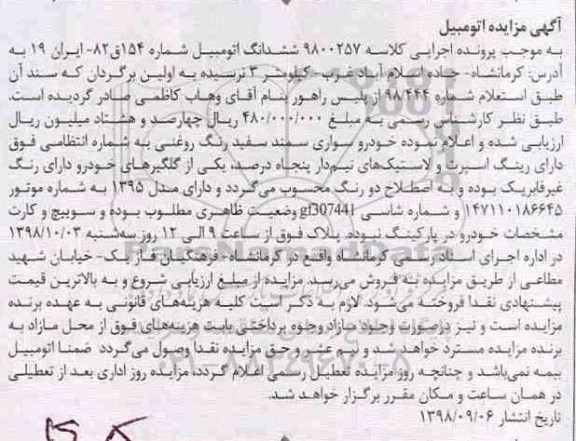 آگهی مزایده اتومبیل
به موجب پرونده اجرایی کلاسه ۹۸۰۰۲۵۷ ششدانگ اتومبیل شماره ۱۵۴ق۸۲- ایران ۱۹ به
آدرس: کرمانشاه- جاده اسلام آباد غرب- کیلومتر ۳ نرسیده به اولین برگردان که سند آن
طبق استعلام شماره ۹۸/۴۴۴ از پلیس راهور بنام آقای وهاب کاظمی صادر گردیده است.
طبق نظر کارشناس رسمی به مبلغ ۴۸۰/۰۰۰/۰۰۰ ریال چهارصد و هشتاد میلیون ریال
ارزیابی شده و اعلام نموده خودرو سواری سمند سفید رنگ روغنی به شماره انتظامی فوق
دارای رینگ اسپرت و لاستیک‌های نیم‌دار پنجاه درصد، یکی از گلگیرهای خودرو دارای رنگ
غیرفابریک بوده و به اصطلاح دو رنگ محسوب می‌گردد و دارای مدل ۱۳۹۵ به شماره موتور
۱۴۷۱۱۰۱۸۶۶۴۵ و شماره شاسی gf307441 وضعیت ظاهری مطلوب بوده و سوییچ و کارت
مشخصات خودرو در پارکینگ نبوده. پلاک فوق از ساعت ۹ الی ۱۲ روز سه‌شنبه ۱۳۹۸/۱۰/۰۳
در اداره اجرای اسناد رسمی کرمانشاه واقع در کرمانشاه- فرهنگیان فاز یک- خیابان شهید
مطاعی از طریق مزایده به فروش می‌رسد. مزایده از مبلغ ارزیابی شروع و به بالاترین قیمت
پیشنهادی نقدا فروخته می‌شود. لازم به ذکر است کلیه هزینه‌های قانونی به عهده برنده
مزایده است و نیز درصورت وجود مازاد وجوه پرداختی بابت هزینه‌های فوق از محل مازاد به
برنده مزایده مسترد خواهد شد و نیم عشر و حق مزایده نقدا وصول می‌گردد ضمنا اتومبیل
بیمه نمی‌باشد و چنانچه روز مزایده تعطیل رسمی اعلام گردد، مزایده روز اداری بعد از تعطیلی
در همان ساعت و مکان مقرر برگزار خواهد شد.
تاریخ انتشار ۱۳۹۸/۰۹/۰۶